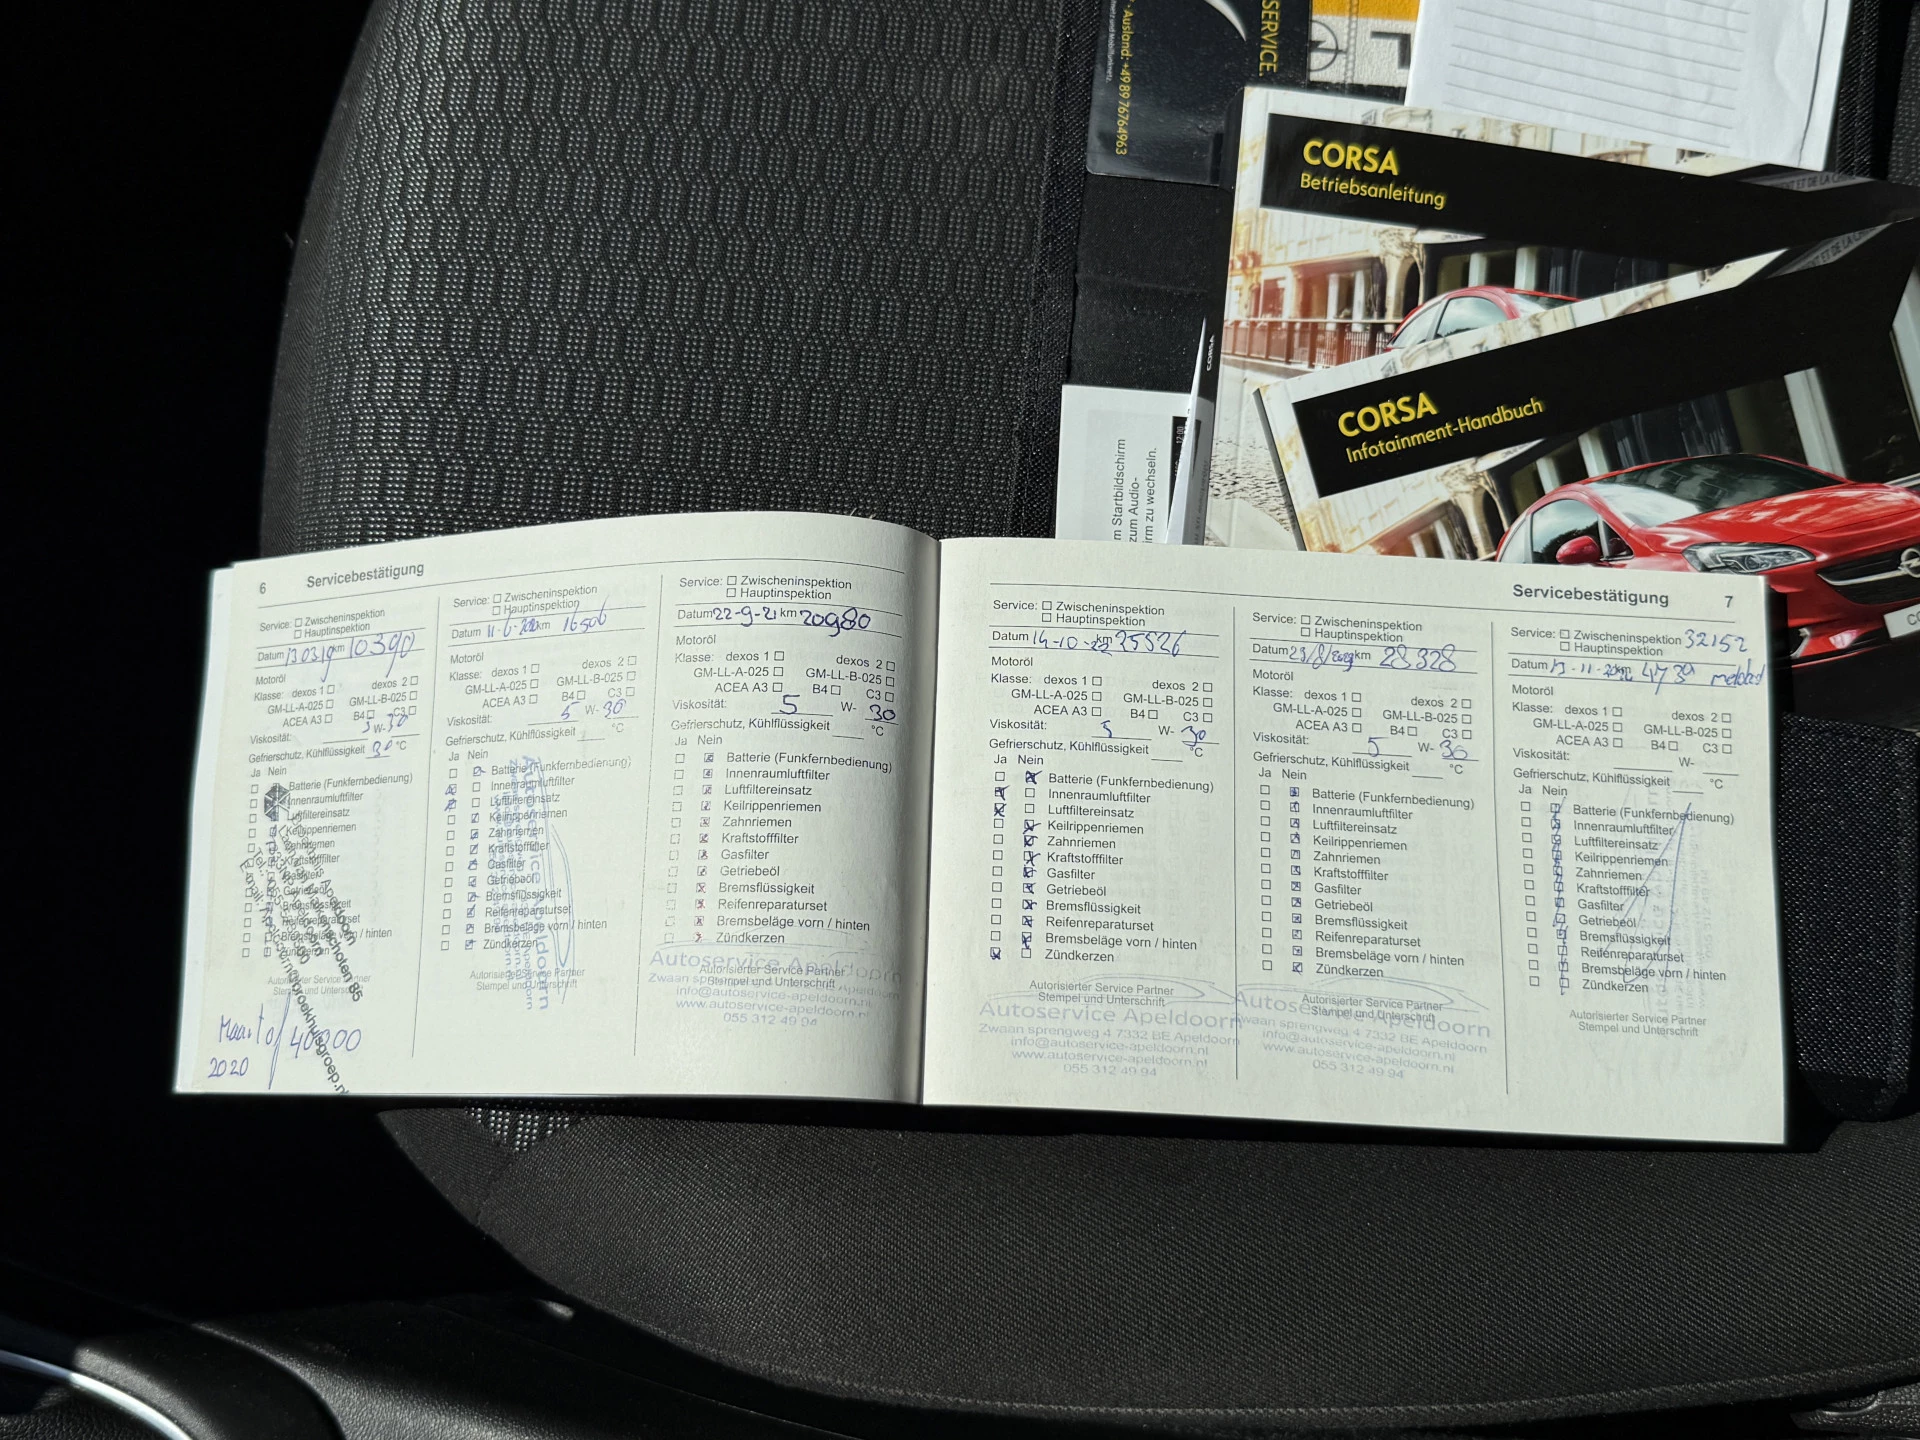 SERVICE.
· Ausland: +49 89 76764963
CORSA
Betriebsanleitung
CORSA
CORSA
Infotainment-Handbuch
m Startbildschirm
zum Audio-
irm zu wechseln.
6 Servicebestätigung
Service: Zwischeninspektion
Hauptinspektion
Datum 130319 km 10390
Motoröl
Klasse: dexos 1 dexos 2
GM-LL-A-025 GM-LL-B-025
ACEA A3 B4 C3
Viskosität: 5 W- 30
Gefrierschutz, Kühlflüssigkeit 30 °C
Ja Nein
Batterie (Funkfernbedienung)
Innenraumluftfilter
Luftfiltereinsatz
Keilrippenriemen
Zahnriemen
Kraftstofffilter
Gasfilter
Getriebeöl
Bremsflüssigkeit
Reifenreparaturset
Bremsbeläge vorn / hinten
Zündkerzen
Autorisierter Service Partner
Stempel und Unterschrift
Maart of 40000
2020
Service: Zwischeninspektion
Hauptinspektion
Datum km 16506
Motoröl
Klasse: dexos 1 dexos 2
GM-LL-A-025 GM-LL-B-025
ACEA A3 B4 C3
Viskosität: 5 W- 30
Gefrierschutz, Kühlflüssigkeit °C
Ja Nein
Batterie (Funkfernbedienung)
Innenraumluftfilter
Luftfiltereinsatz
Keilrippenriemen
Zahnriemen
Kraftstofffilter
Gasfilter
Getriebeöl
Bremsflüssigkeit
Reifenreparaturset
Bremsbeläge vorn / hinten
Zündkerzen
Autorisierter Service Partner
Stempel und Unterschrift
Autoservice Apeldoorn
Service: Zwischeninspektion
Hauptinspektion
Datum 22-9-21 km 20980
Motoröl
Klasse: dexos 1 dexos 2
GM-LL-A-025 GM-LL-B-025
ACEA A3 B4 C3
Viskosität: 5 W- 30
Gefrierschutz, Kühlflüssigkeit °C
Ja Nein
Batterie (Funkfernbedienung)
Innenraumluftfilter
Luftfiltereinsatz
Keilrippenriemen
Zahnriemen
Kraftstofffilter
Gasfilter
Getriebeöl
Bremsflüssigkeit
Reifenreparaturset
Bremsbeläge vorn / hinten
Zündkerzen
Autorisierter Service Partner
Stempel und Unterschrift
Autoservice Apeldoorn
info@autoservice-apeldoorn.nl
www.autoservice-apeldoorn.nl
055 312 49 94
Servicebestätigung 7
Service: Zwischeninspektion
Hauptinspektion
Datum 14-10- km 25526
Motoröl
Klasse: dexos 1 dexos 2
GM-LL-A-025 GM-LL-B-025
ACEA A3 B4 C3
Viskosität: 5 W- 30
Gefrierschutz, Kühlflüssigkeit °C
Ja Nein
Batterie (Funkfernbedienung)
Innenraumluftfilter
Luftfiltereinsatz
Keilrippenriemen
Zahnriemen
Kraftstofffilter
Gasfilter
Getriebeöl
Bremsflüssigkeit
Reifenreparaturset
Bremsbeläge vorn / hinten
Zündkerzen
Autorisierter Service Partner
Stempel und Unterschrift
Autoservice Apeldoorn
Zwaan sprengweg 4 7332 BE Apeldoorn
info@autoservice-apeldoorn.nl
www.autoservice-apeldoorn.nl
055 312 49 94
Service: Zwischeninspektion
Hauptinspektion
Datum km 28328
Motoröl
Klasse: dexos 1 dexos 2
GM-LL-A-025 GM-LL-B-025
ACEA A3 B4 C3
Viskosität: 5 W- 30
Gefrierschutz, Kühlflüssigkeit °C
Ja Nein
Batterie (Funkfernbedienung)
Innenraumluftfilter
Luftfiltereinsatz
Keilrippenriemen
Zahnriemen
Kraftstofffilter
Gasfilter
Getriebeöl
Bremsflüssigkeit
Reifenreparaturset
Bremsbeläge vorn / hinten
Zündkerzen
Autorisierter Service Partner
Stempel und Unterschrift
Autoservice Apeldoorn
Zwaan sprengweg 4 7332 BE Apeldoorn
info@autoservice-apeldoorn.nl
www.autoservice-apeldoorn.nl
055 312 49 94
Service: Zwischeninspektion 32152
Hauptinspektion
Datum 13-11- km
Motoröl
Klasse: dexos 1 dexos 2
GM-LL-A-025 GM-LL-B-025
ACEA A3 B4 C3
Viskosität: W-
Gefrierschutz, Kühlflüssigkeit °C
Ja Nein
Batterie (Funkfernbedienung)
Innenraumluftfilter
Luftfiltereinsatz
Keilrippenriemen
Zahnriemen
Kraftstofffilter
Gasfilter
Getriebeöl
Bremsflüssigkeit
Reifenreparaturset
Bremsbeläge vorn / hinten
Zündkerzen
Autorisierter Service Partner
Stempel und Unterschrift